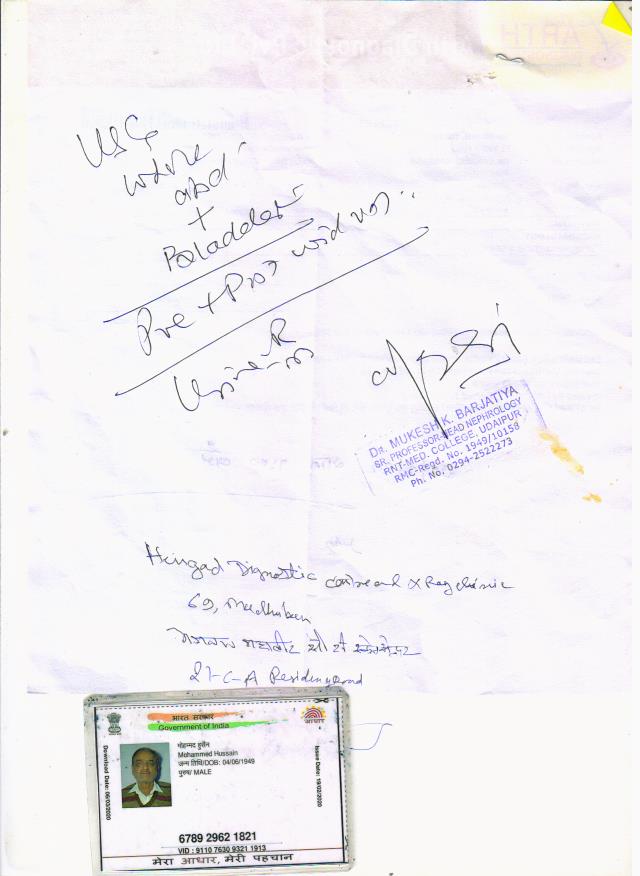 ARTH
USG
whole
abd.
+
Bladder
Pre + Post void vol..
Urine-R
DR. MUKESH K. BARJATIYA
SR. PROFESSOR-HEAD NEPHROLOGY
RNT-MED. COLLEGE, UDAIPUR
RMC-Regd. No. 1949/10158
Ph. No. 0294-2522273
Hingad Dignostic and X Ray clinic
69, Madhuban
महावीर
27-C-A Residency Road
भारत सरकार
Government of India
आधार
मोहम्मद हुसैन
Mohammed Hussain
जन्म तिथि/DOB: 04/06/1949
पुरुष/ MALE
Download Date: 06/03/2020
Issue Date: 19/02/2020
6789 2962 1821
VID : 9110 7630 9321 1913
मेरा आधार, मेरी पहचान